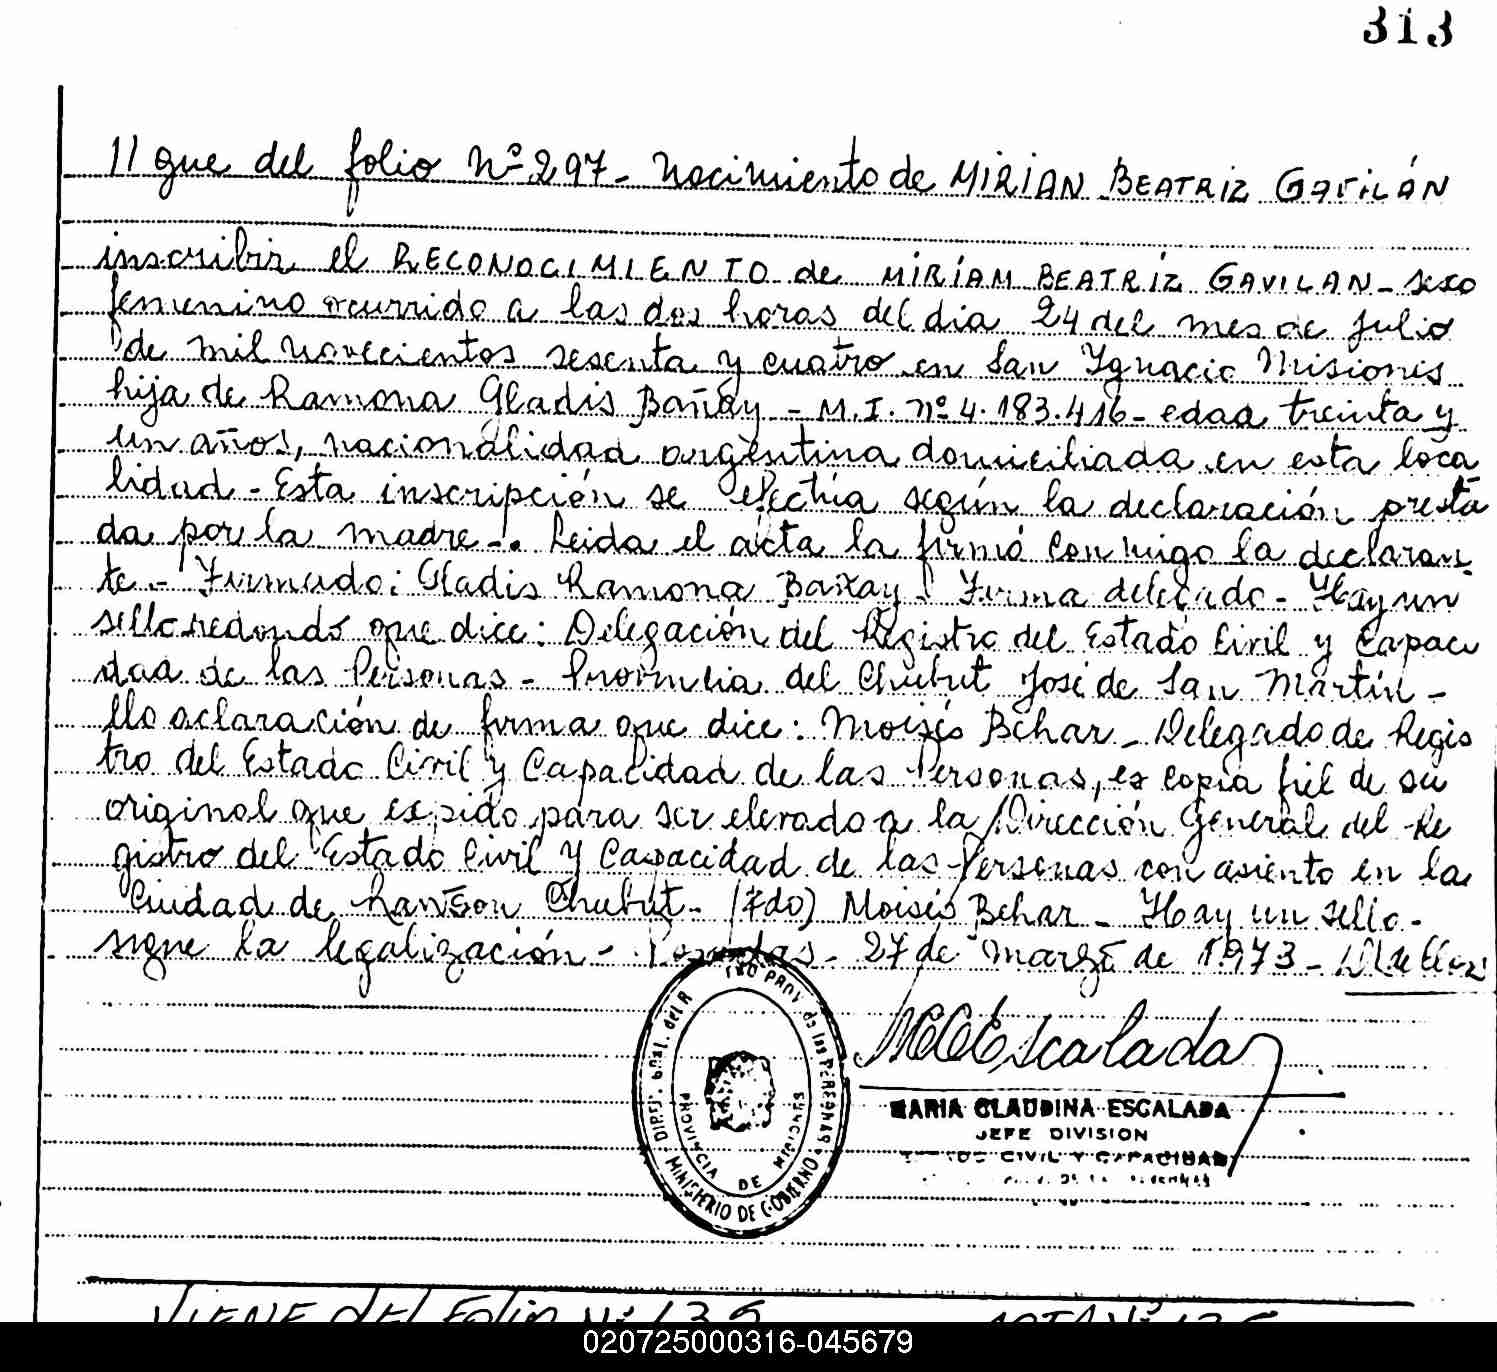 313
11 que del folio Nº 297- Nacimiento de MIRIAN BEATRIZ GAVILÁN
inscribir el RECONOCIMIENTO de MIRÍAM BEATRÍZ GAVILAN - sexo
femenino ocurrido a las dos horas del dia 24 del mes de Julio
de mil novecientos sesenta y cuatro en San Ignacio Misiones
hija de Ramona Gladis Bañay - M.I. nº 4.183.416 - edad treinta y
un años, nacionalidad argentina domiciliada en esta loca
lidad - Esta inscripción se efectúa según la declaración presta
da por la madre -. Leida el acta la firmó conmigo la declaran
te - Firmado: Gladis Ramona Bañay - Firma delegado - Hay un
sello redondo que dice: Delegación del Registro del Estado Civil y Capaci
dad de las Personas - Provincia del Chubut José de San Martín -
llo aclaración de firma que dice: Moisés Behar - Delegado de Regis
tro del Estado Civil y Capacidad de las Personas, es copia fiel de su
original que expido para ser elevado a la Dirección General del Re
gistro del Estado Civil y Capacidad de las Personas con asiento en la
Ciudad de Rawson Chubut - (Fdo) Moisés Behar - Hay un sello -
sigue la legalización - Posadas - 27 de Marzo de 1973 -
MCEscalada
MARIA CLAUDINA ESCALADA
JEFE DIVISION
CIVIL Y CAPACIDAD
DIREC. GRAL. del R PROV. de las PERSONAS
MINISTERIO DE GOBIERNO
PROVINCIA DE MISIONES
VIENE del Folio Nº 136
ACTA Nº 136
020725000316-045679